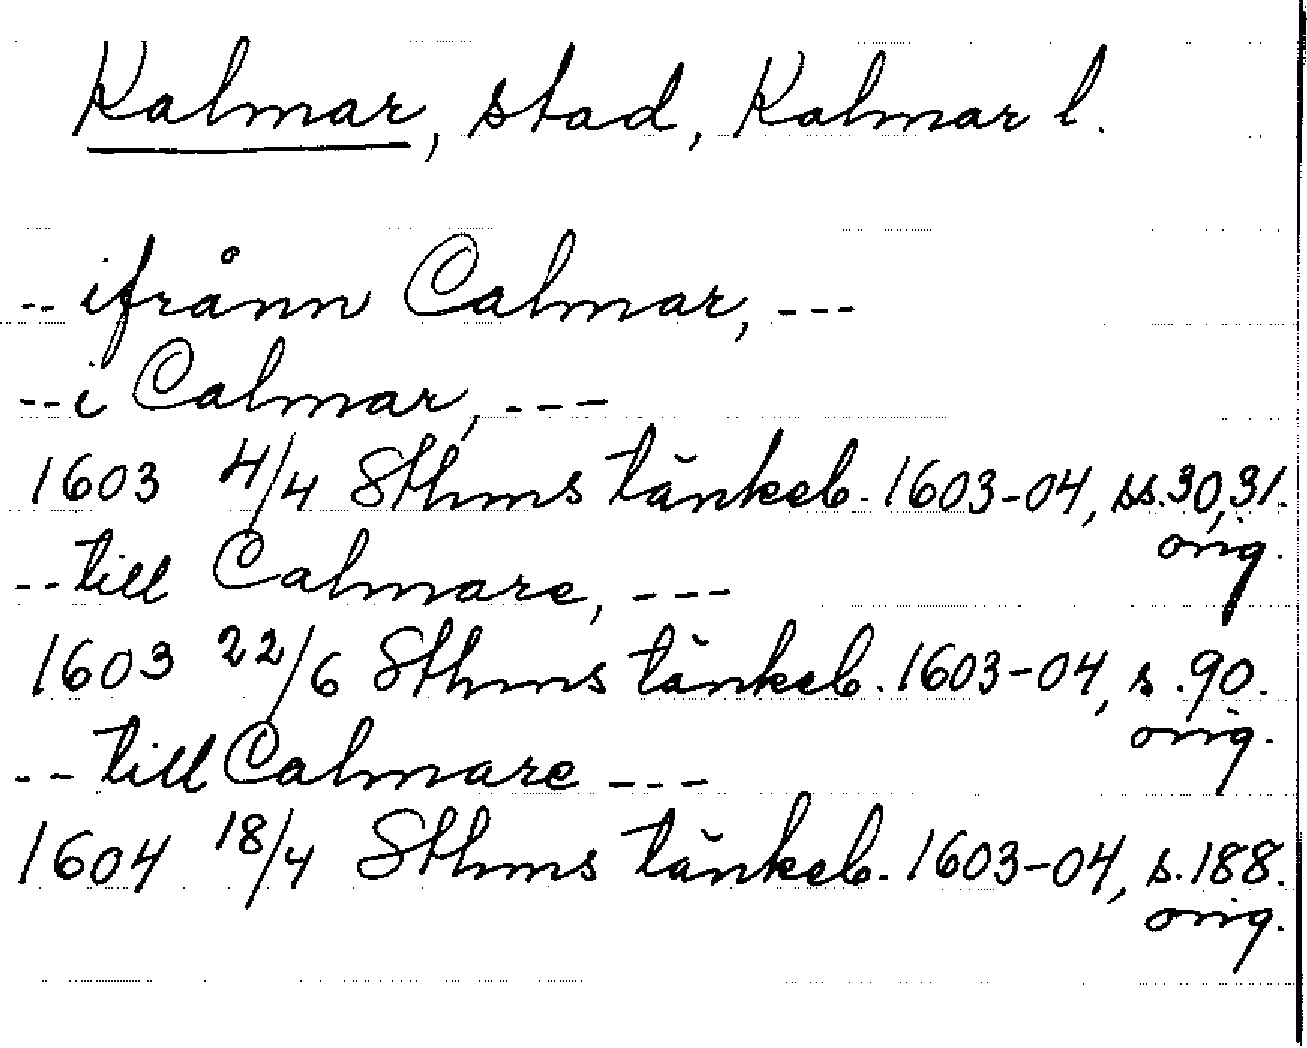 Kalmar, stad, Kalmar l.
-- ifrånn Calmar, ---
-- i Calmar, ---
1603 4/4 Sthms tänkeb. 1603-04, ss. 30, 31.
orig.
-- till Calmare, ---
1603 22/6 Sthms tänkeb. 1603-04, s. 90.
orig.
-- till Calmare ---
1604 18/4 Sthms tänkeb. 1603-04, s. 188.
orig.